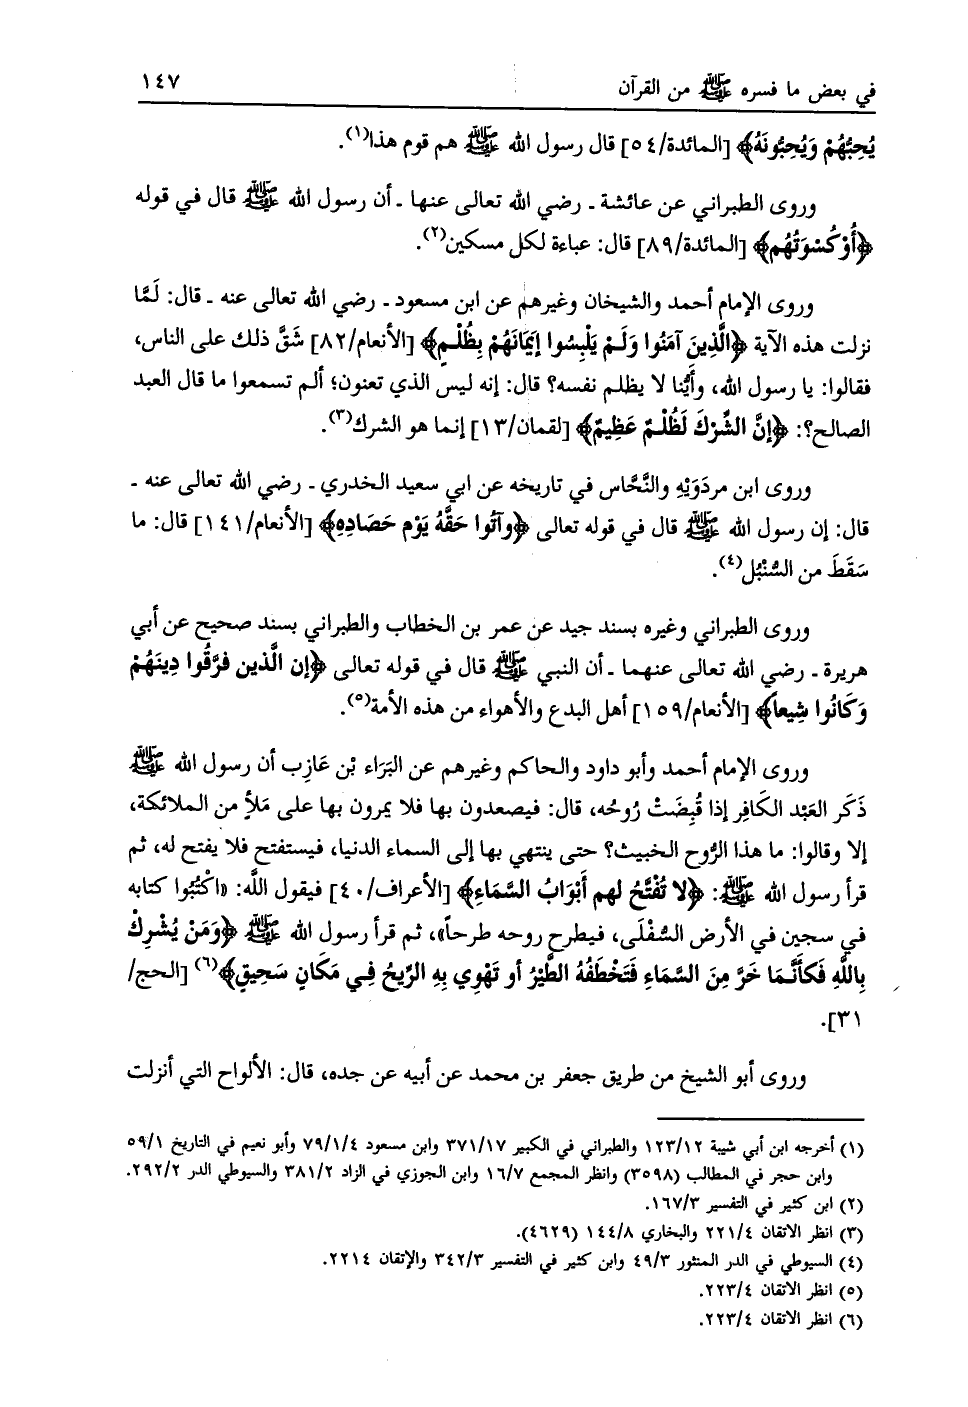 في بعض ما فسره ﷺ من القرآن ١٤٧
يُحِبُّهُمْ وَيُحِبُّونَهُ﴾ [المائدة/٥٤] قال رسول الله ﷺ هم قوم هذا(١).
وروى الطبراني عن عائشة ـ رضي الله تعالى عنها ـ أن رسول الله ﷺ قال في قوله
﴿أَوْ كُسْوَتُهُم﴾ [المائدة/٨٩] قال: عباءة لكل مسكين(٢).
وروى الإمام أحمد والشيخان وغيرهم عن ابن مسعود ـ رضي الله تعالى عنه ـ قال: لَمَّا
نزلت هذه الآية ﴿الَّذِينَ آمَنُوا وَلَمْ يَلْبِسُوا إِيمَانَهُمْ بِظُلْمٍ﴾ [الأنعام/٨٢] شَقَّ ذلك على الناس،
فقالوا: يا رسول الله، وأَيُّنا لا يظلم نفسه؟ قال: إنه ليس الذي تعنون؛ ألم تسمعوا ما قال العبد
الصالح؟: ﴿إِنَّ الشِّرْكَ لَظُلْمٌ عَظِيمٌ﴾ [لقمان/١٣] إنما هو الشرك(٣).
وروى ابن مردَوَيْهِ والنَّحَّاس في تاريخه عن ابي سعيد الخدري ـ رضي الله تعالى عنه ـ
قال: إن رسول الله ﷺ قال في قوله تعالى ﴿وآتُوا حَقَّهُ يَوْم حَصَادِهِ﴾ [الأنعام/١٤١] قال: ما
سَقَطَ من السُّنْبُل(٤).
وروى الطبراني وغيره بسند جيد عن عمر بن الخطاب والطبراني بسند صحيح عن أبي
هريرة ـ رضي الله تعالى عنهما ـ أن النبي ﷺ قال في قوله تعالى ﴿إن الَّذين فرَّقُوا دِينَهُمْ
وَكَانُوا شِيعاً﴾ [الأنعام/١٥٩] أهل البدع والأهواء من هذه الأمة(٥).
وروى الإمام أحمد وأبو داود والحاكم وغيرهم عن البَرَاء بْن عَازِب أن رسول الله ﷺ
ذَكَر العَبْد الكَافِر إذا قُبِضَتْ رُوحُه، قال: فيصعدون بها فلا يمرون بها على مَلأٍ من الملائكة،
إلا وقالوا: ما هذا الرُّوح الخبيث؟ حتى ينتهي بها إلى السماء الدنيا، فيستفتح فلا يفتح له، ثم
قرأ رسول الله ﷺ: ﴿لا تُفْتَّحُ لهم أَبْوَابُ السَّمَاءِ﴾ [الأعراف/٤٠] فيقول اللَّه: «اكْتُبُوا كتابه
في سجين في الأرض السُّفْلَى، فيطرح روحه طرحاً»، ثم قرأ رسول الله ﷺ ﴿وَمَنْ يُشْرِكْ
بِاللَّهِ فَكَأَنَّمَا خَرَّ مِنَ السَّمَاءِ فَتَخْطَفُهُ الطَّيْرُ أو تَهْوِي بِهِ الرِّيحُ فِي مَكَانٍ سَحِيقٍ﴾(٦) [الحج/
٣١].
وروى أبو الشيخ من طريق جعفر بن محمد عن أبيه عن جده، قال: الألواح التي أنزلت
(١) أخرجه ابن أبي شيبة ١٢٣/١٢ والطبراني في الكبير ٣٧١/١٧ وابن مسعود ٧٩/١/٤ وأبو نعيم في التاريخ ٥٩/١
وابن حجر في المطالب (٣٥٩٨) وانظر المجمع ١٦/٧ وابن الجوزي في الزاد ٣٨١/٢ والسيوطي الدر ٢٩٢/٢.
(٢) ابن كثير في التفسير ١٦٧/٣.
(٣) انظر الاتقان ٢٢١/٤ والبخاري ١٤٤/٨ (٤٦٢٩).
(٤) السيوطي في الدر المنثور ٤٩/٣ وابن كثير في التفسير ٣٤٢/٣ والإتقان ٢٢١٤.
(٥) انظر الاتقان ٢٢٣/٤.
(٦) انظر الاتقان ٢٢٣/٤.